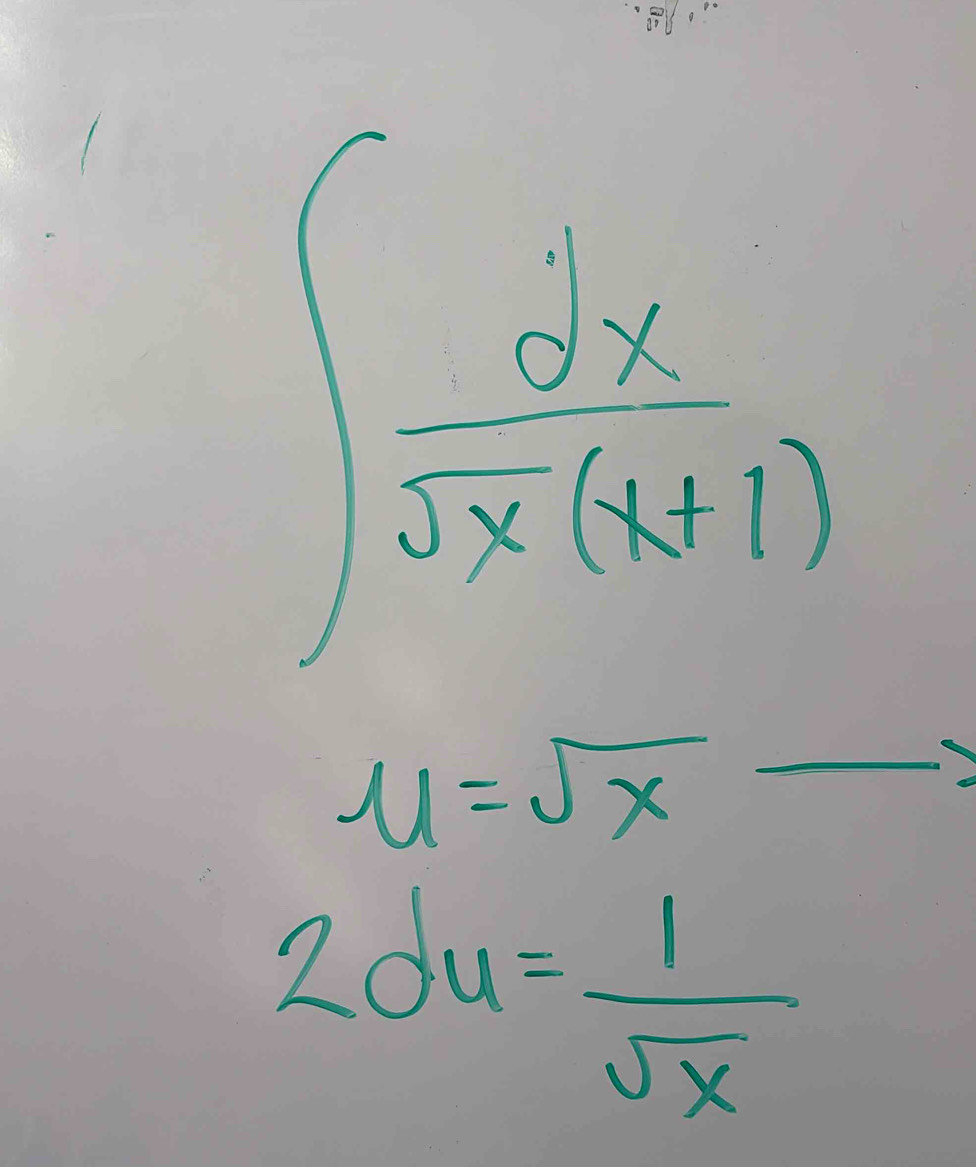 ∫ dx / √x (x+1)
u = √x →
2du = 1 / √x